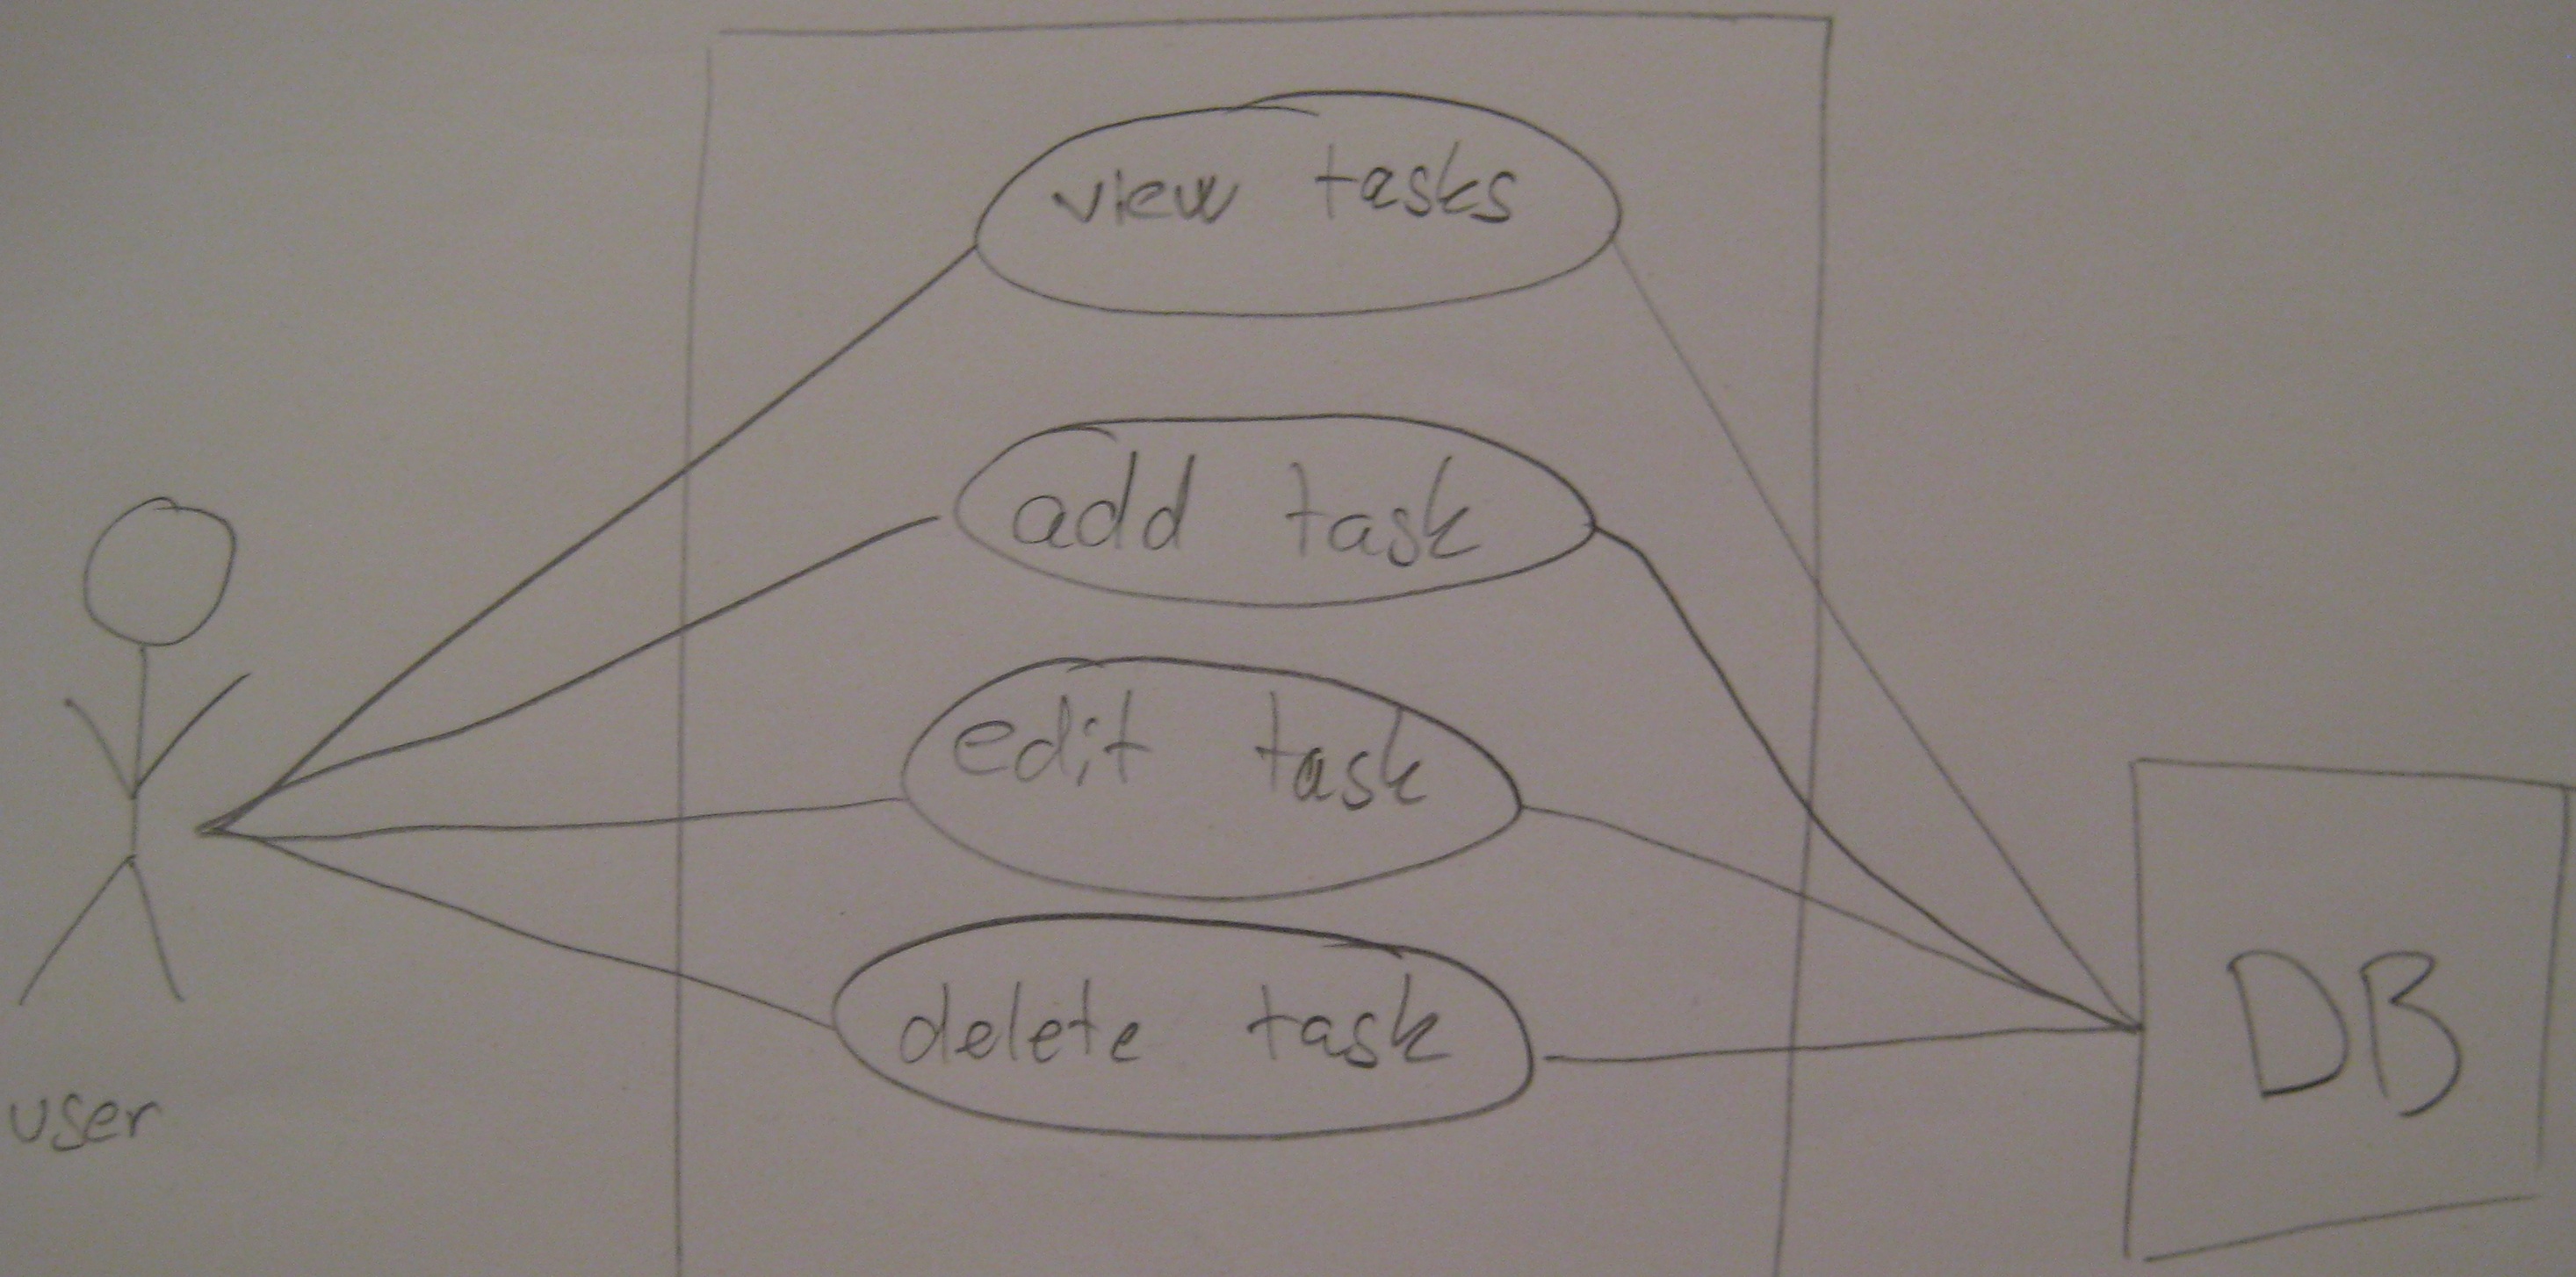 view tasks
add task
edit task
delete task
user
DB